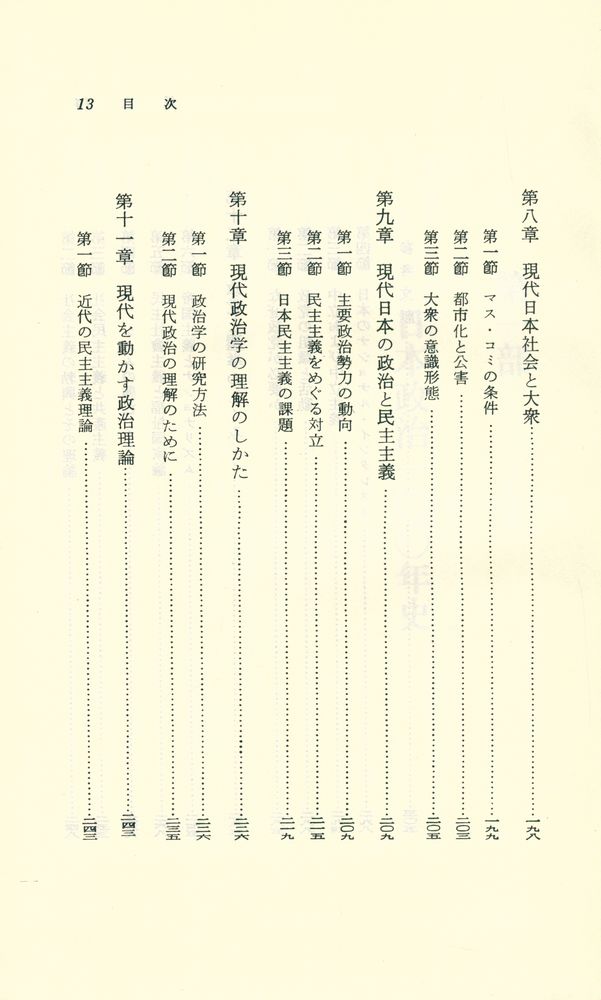 13　目　次
第八章　現代日本社会と大衆……一九八
第一節　マス・コミの条件……一九九
第二節　都市化と公害……二〇三
第三節　大衆の意識形態……二〇五
第九章　現代日本の政治と民主主義……二〇九
第一節　主要政治勢力の動向……二〇九
第二節　民主主義をめぐる対立……二一五
第三節　日本民主主義の課題……二一九
第十章　現代政治学の理解のしかた……二二六
第一節　政治学の研究方法……二二六
第二節　現代政治の理解のために……二三五
第十一章　現代を動かす政治理論……二四三
第一節　近代の民主主義理論……二四三